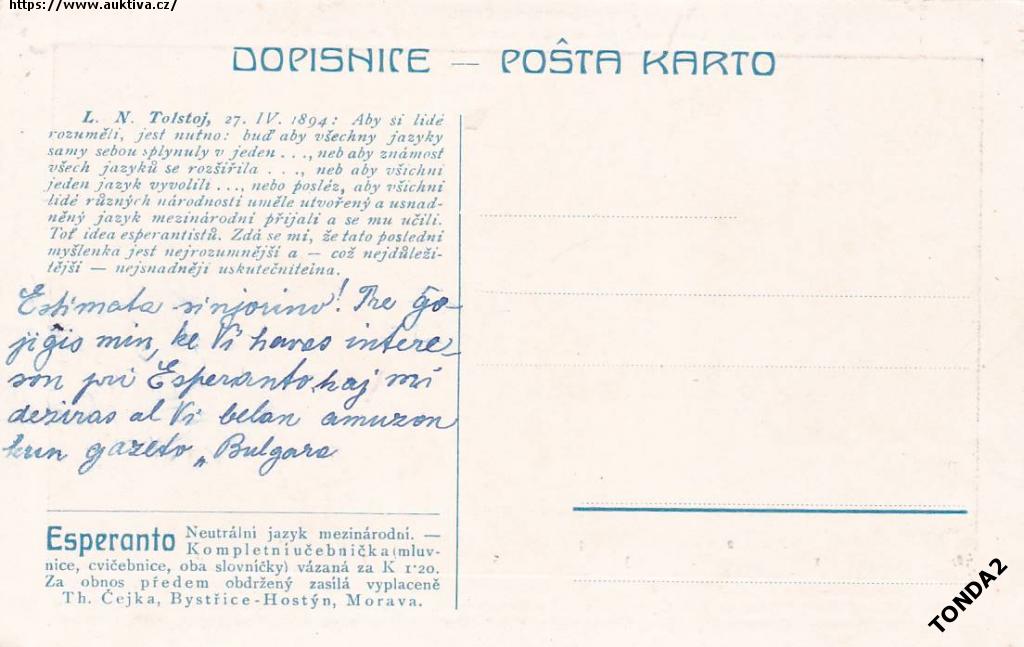 https://www.auktiva.cz/
DOPISNICE — POŜTA KARTO
L. N. Tolstoj, 27. IV. 1894: Aby si lidé
rozuměli, jest nutno: buď aby všechny jazyky
samy sebou splynuly v jeden . . ., neb aby známost
všech jazyků se rozšířila . . ., neb aby všichni
jeden jazyk vyvolili . . ., nebo posléz, aby všichni
lidé různých národností uměle utvořený a usnad-
něný jazyk mezinárodní přijali a se mu učili.
Toť idea esperantistů. Zdá se mi, že tato poslední
myšlenka jest nejrozumnější a — což nejdůleži-
tější — nejsnadněji uskutečnitelna.
Estimata sinjorino! Tre ĝo-
jiĝis min, ke Vi havas intere-
son pri Esperanto, kaj mi
deziras al Vi belan amuzon
kun gazeto „Bulgara
Esperanto Neutrální jazyk mezinárodní. —
Kompletní učebnička (mluv-
nice, cvičebnice, oba slovníčky) vázaná za K 1·20.
Za obnos předem obdržený zasílá vyplaceně
Th. Čejka, Bystřice-Hostýn, Morava.
TONDA2